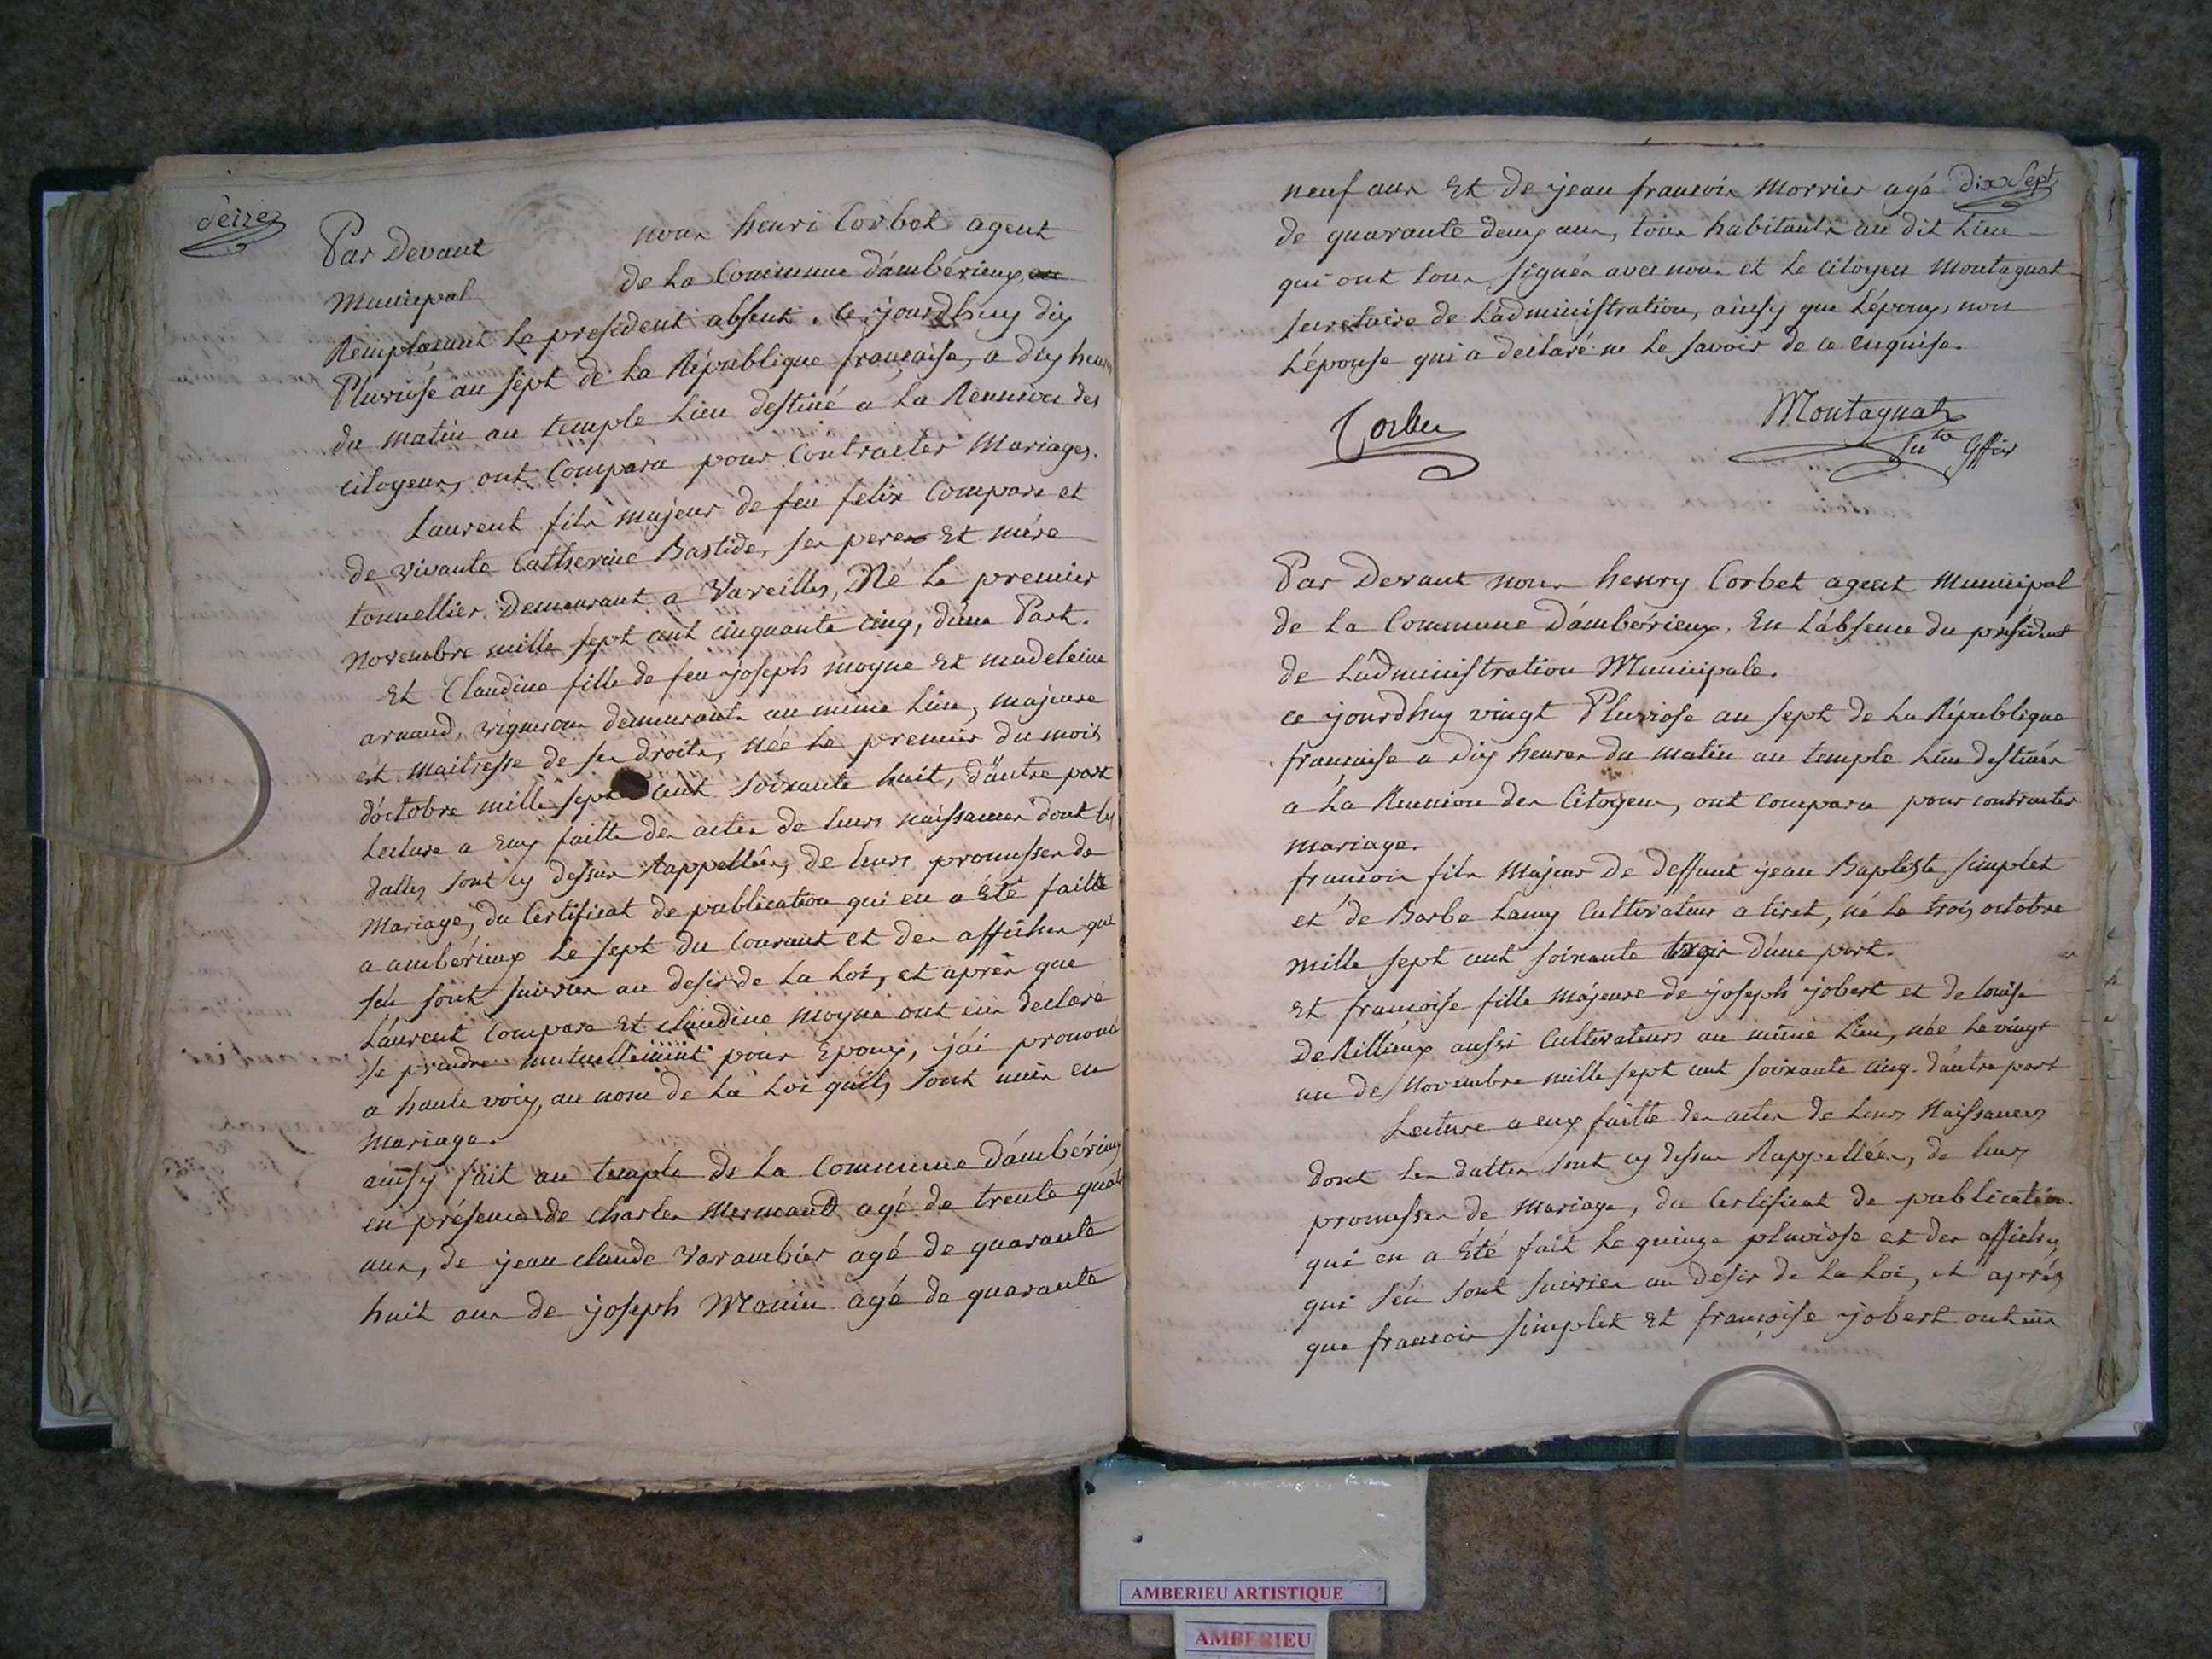 seize
Par Devant nous henri Corbet agent
Municipal de La Commune d'ambérieux, en
Remplacant Le president absent. Ce jourdhuy dix
Pluviose an sept de La République francaise, a dix heures
du matin au temple Lieu destiné a La Reunion des
citoyens, ont Comparu pour Contracter Mariages.
Laurent fils majeur de feu felix Compare et
de vivante Catherine Bastide, ses peres Et mére
tonnellier Demeurant a Vareilles, Né Le premier
Novembre mille sept cent cinquante cinq, d'une Part.
Et Claudine fille de feu joseph moyne Et madeleine
arnaud, vignerons demeurants au même Lieu, majeure
et maitresse de ses droits, née Le premier du mois
d'octobre mille sept cent soixante huit, d'autre part
Lecture a Eux faitte des actes de leurs naissances dont les
dattes sont cy dessus Rappellées, de leurs promesses de
Mariage, du Certificat de publication qui en a Eté faitte
a ambérieux Le sept du Courant et des affiches qui
s'én sont suivies au desir de La Loi, et après que
Laurent Compare Et claudine moyne ont eu declaré
se prendre mutuellement pour Epoux, j'ai prononcé
a haute voix, au nom de La Loi qu'ils sont unis en
Mariage.
ainsy fait au temple de La Commune D'ambérieux
en présence de charles Mermand agé de trente quatre
ans, de jean claude Varambier agé de quarante
huit ans de joseph Monin agé de quarante
neuf ans Et de jean francois Morrier agé dix sept
de quarante deux ans, tous habitants au dit Lieu
qui ont tous signés avec nous et Le citoyen Montagnat
secretaire de L'administration, ainsy que L'époux, non
L'épouse qui a declaré ne Le savoir de ce Enquise.
Corbet Montagnat
Par Devant nous henry Corbet agent Municipal
de La Commune D'amberieux. En L'absence du président
de L'administration Municipale.
ce jourdhuy vingt Pluviose an sept de La République
francaise a Dix heures du matin au temple Lieu destinés
a La Reunion des Citoyens, ont comparu pour contracter
mariage.
francois fils Majeur De deffunt jean Baptiste simplet
et de Barbe Lamy Cultivateur a tiret, né Le trois octobre
mille sept cent soixante trois d'une part.
Et francoise fille májeure de joseph jobert et de Louise
De Rillieux aussi Cultivateurs au même Lieu, née Le vingt
un de Novembre mille sept cent soixante cinq. d'autre part
Lecture a eux faitte des actes de Leurs Naissances
dont les dattes sont cy dessus Rappellées, de leurs
promesses de Mariage, du Certificat de publication
qui en a Eté fait Le quinze pluviose et des affiches
qui s'én sont suivies au desir de La Loi, et aprés
que francois simplet Et françoise jobert ont eu
AMBERIEU ARTISTIQUE
AMBERIEU